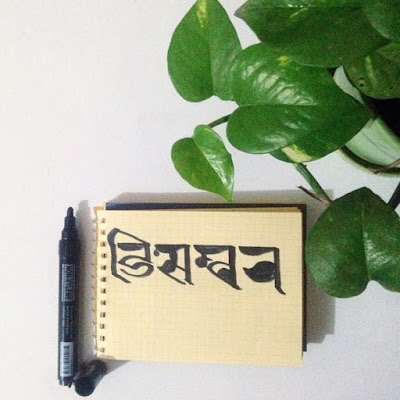 ডিসেম্বর